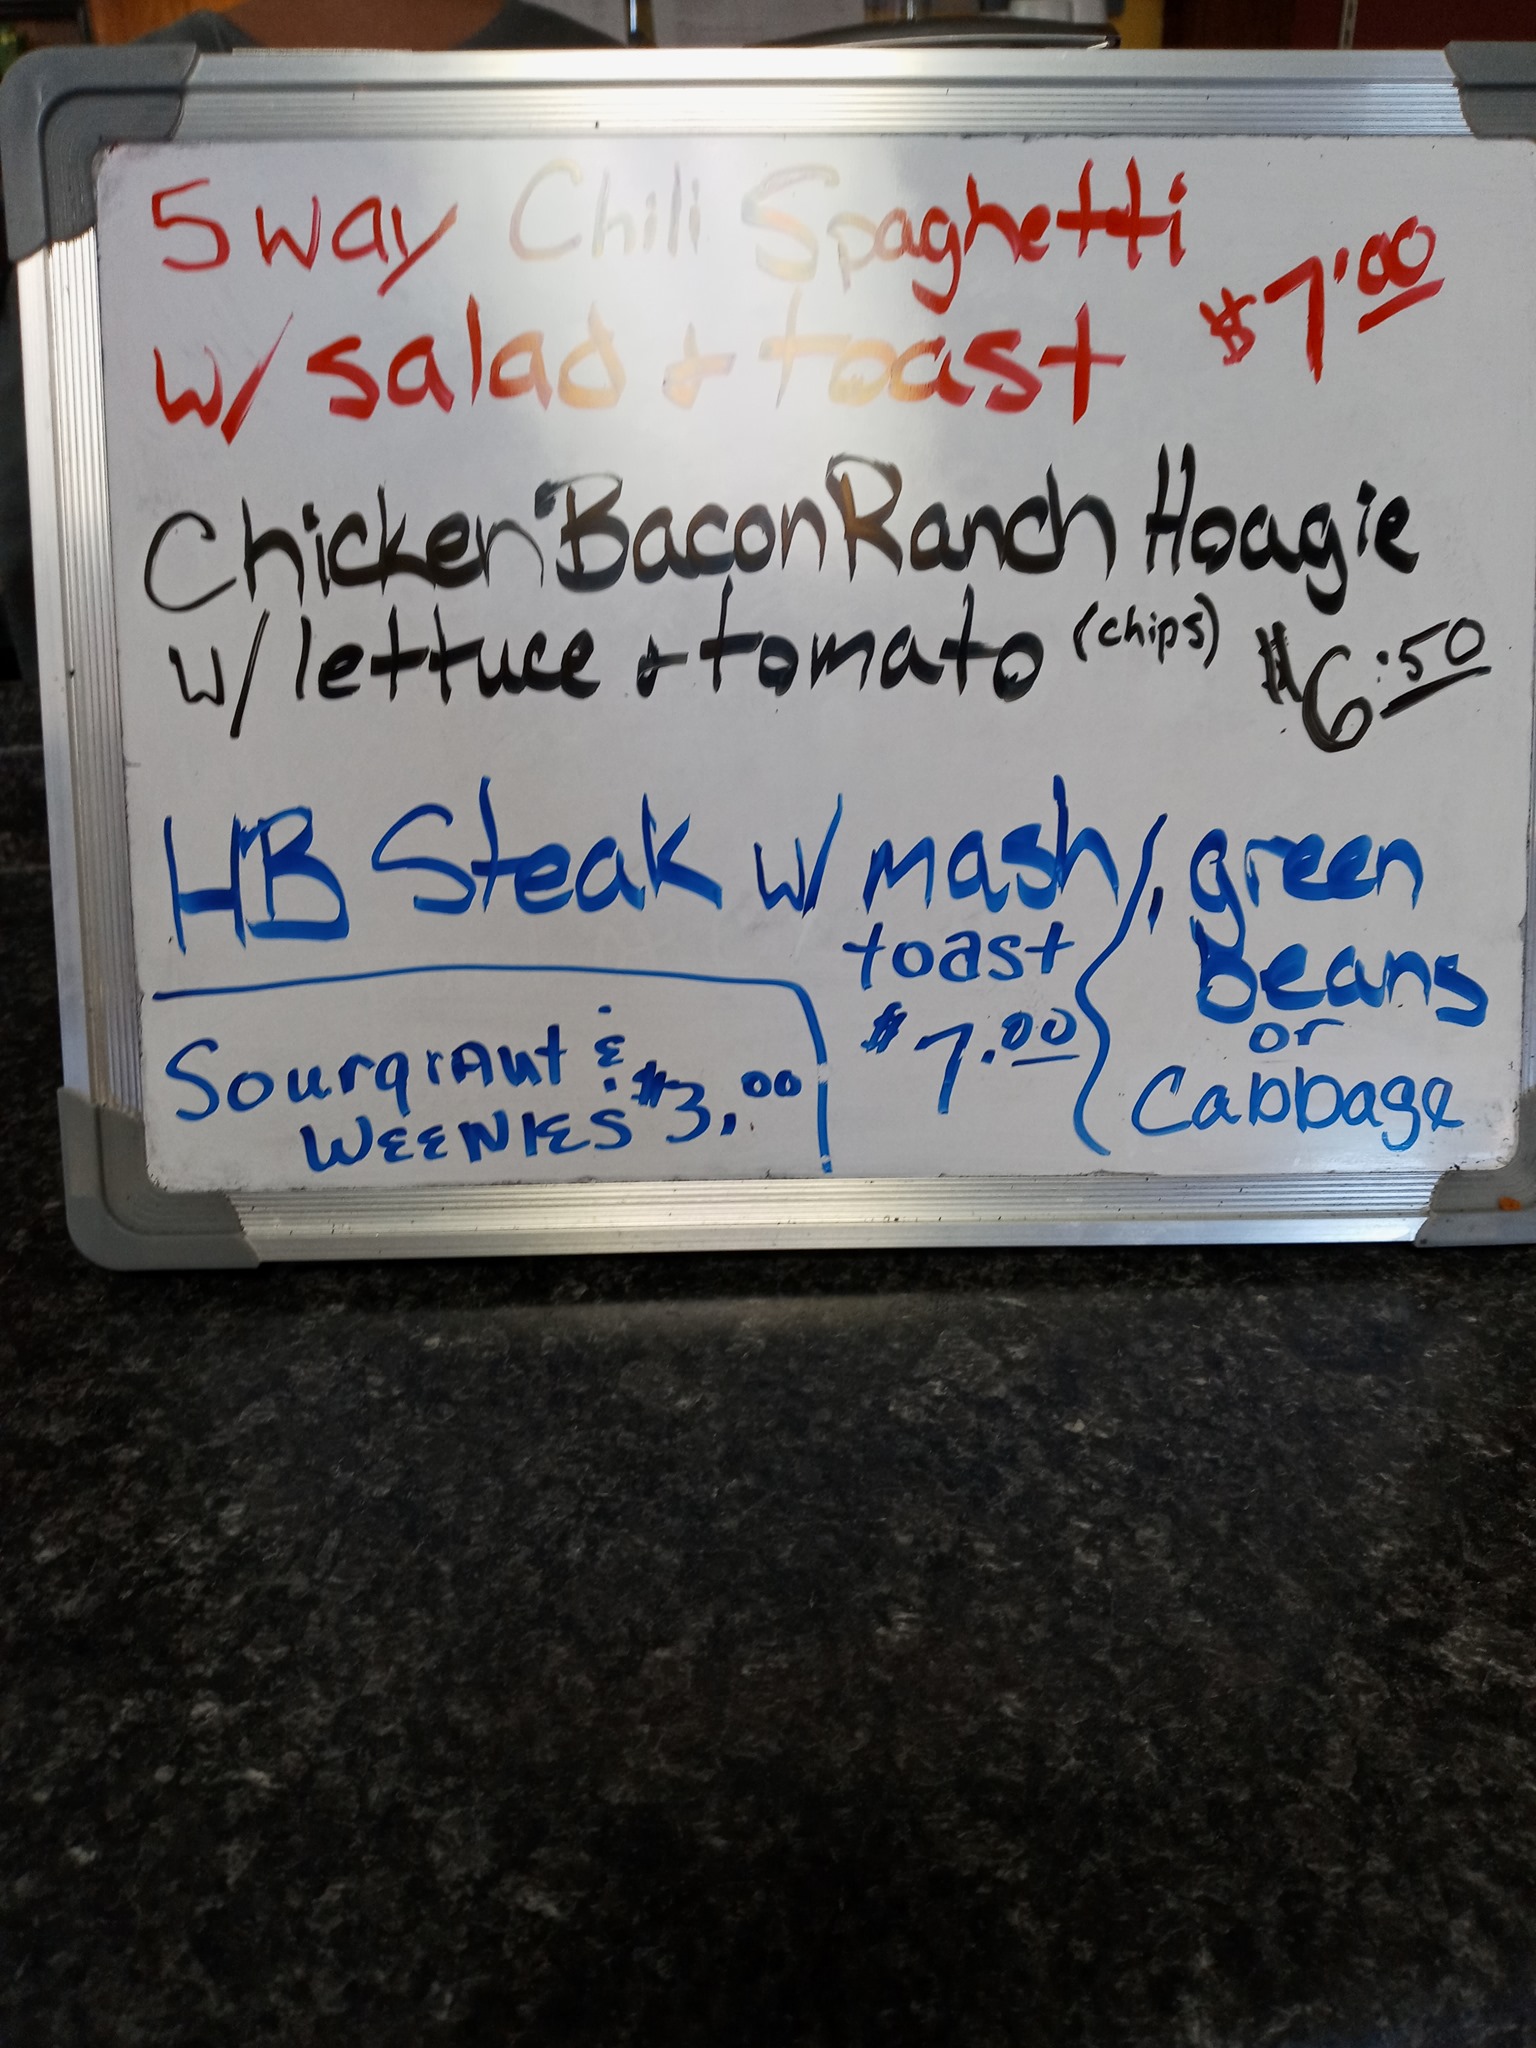 5 way Chili Spaghetti
w/ salad & toast $7.00
Chicken Bacon Ranch Hoagie
w/ lettuce & tomato (chips) $6.50
HB Steak w/ mash, green
toast beans
$7.00 or
Cabbage
Sourqraut &
WEENIES $3.00